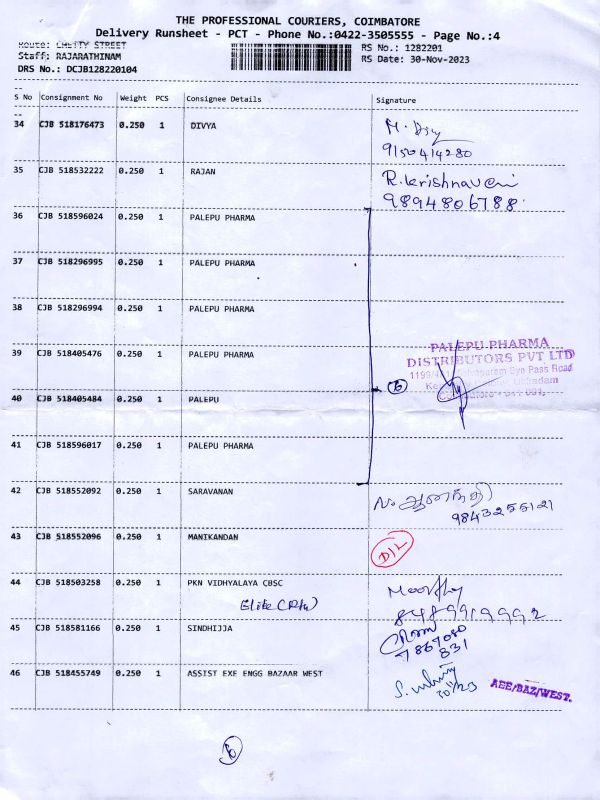 THE PROFESSIONAL COURIERS, COIMBATORE
Delivery Runsheet - PCT - Phone No.:0422-3505555 - Page No.:4
Route: CHETTY STREET
RS No.: 1282201
Staff: RAJARATHINAM
RS Date: 30-Nov-2023
DRS No.: DCJB128220104
S No Consignment No Weight PCS Consignee Details Signature
34 CJB 518176473 0.250 1 DIVYA
9150414280
35 CJB 518532222 0.250 1 RAJAN R.krishnaveni
9894806788
36 CJB 518596024 0.250 1 PALEPU PHARMA
37 CJB 518296995 0.250 1 PALEPU PHARMA
38 CJB 518296994 0.250 1 PALEPU PHARMA
PALEPU PHARMA
39 CJB 518405476 0.250 1 PALEPU PHARMA DISTRIBUTORS PVT LTD
Bye Pass Road
Ukkadam
40 CJB 518405484 0.250 1 PALEPU 6
41 CJB 518596017 0.250 1 PALEPU PHARMA
42 CJB 518552092 0.250 1 SARAVANAN
43 CJB 518552096 0.250 1 MANIKANDAN D/L
44 CJB 518503258 0.250 1 PKN VIDHYALAYA CBSC Moorthy
8489919992
45 CJB 518581166 0.250 1 SINDHIJJA
46 CJB 518455749 0.250 1 ASSIST EXE ENGG BAZAAR WEST AEE/BAZ/WEST.